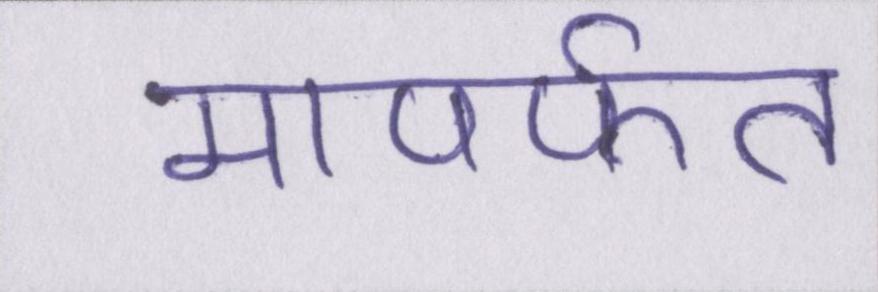 मापर्फत